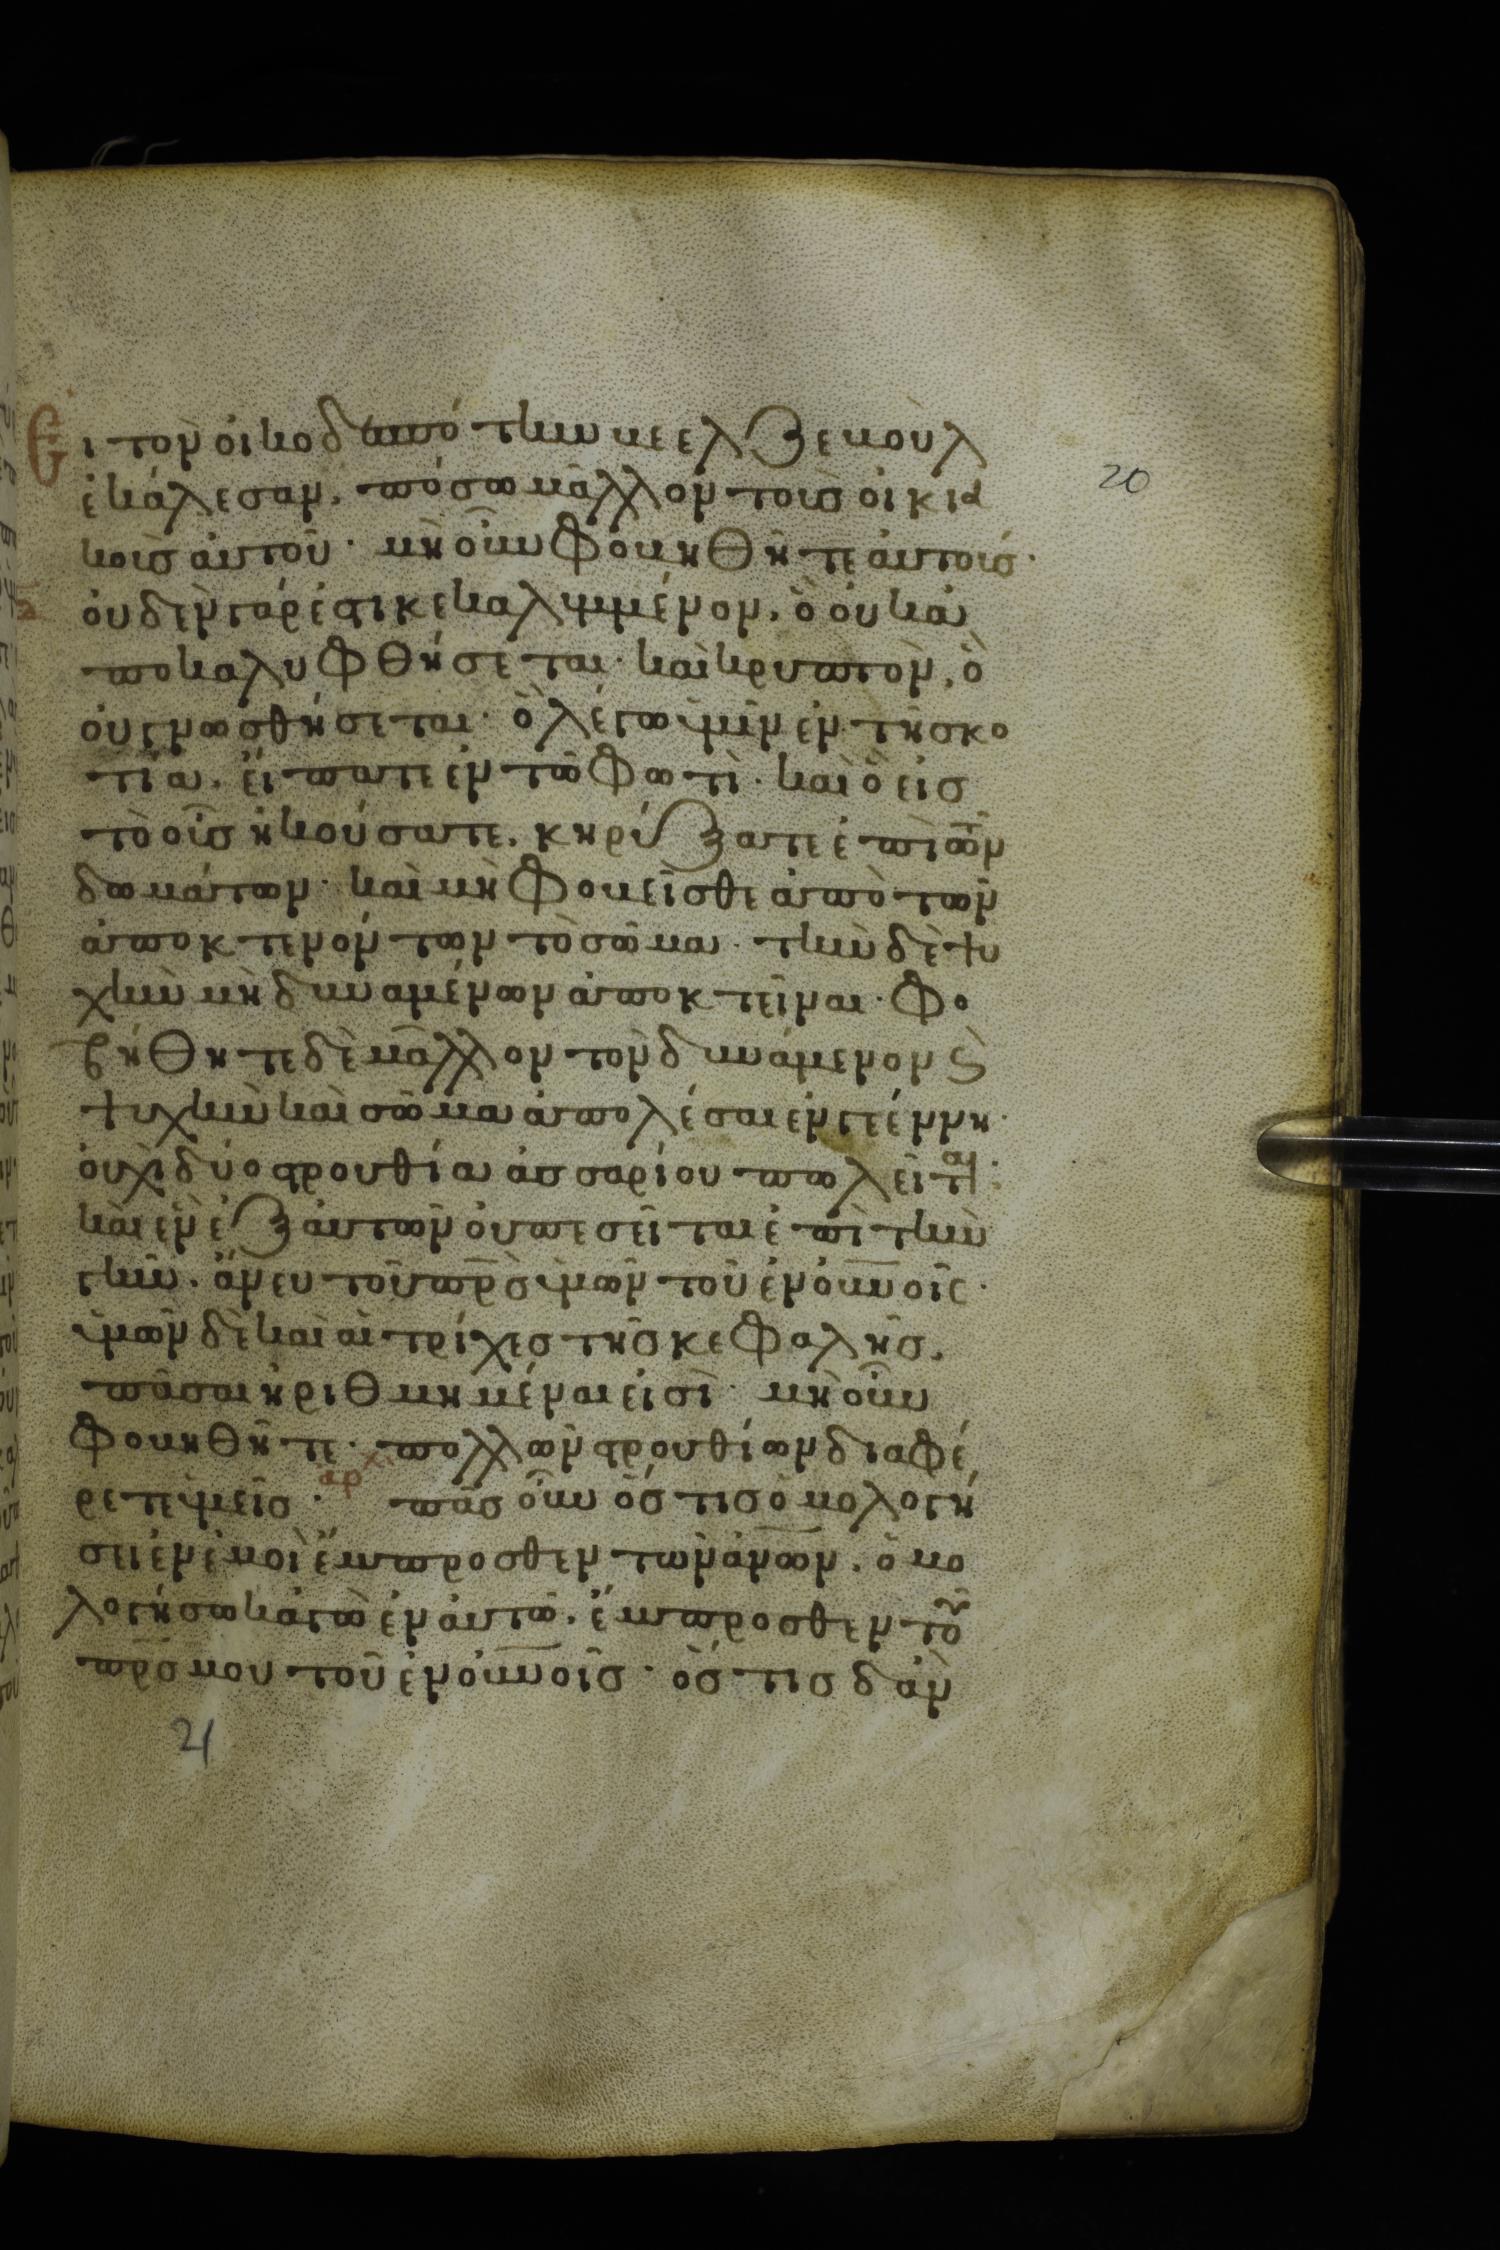 Ει τὸν οἰκοδεσπότην βεελζεβοὺλ
ἐκάλεσαν, πόσω μᾶλλον τοὺς οἰκια
κοὺς αὐτοῦ· μὴ οὖν φοβηθῆτε αὐτούς·
οὐδὲν γάρ ἐστι κεκαλυμμένον, ὃ οὐκ ἀ
ποκαλυφθήσεται· καὶ κρυπτὸν, ὃ
οὐ γνωσθήσεται· ὃ λέγω ὑμῖν ἐν τῆ σκο
τία, εἴπατε ἐν τῶ φωτὶ· καὶ ὃ εἰς
τὸ οὖς ἠκούσατε, κηρύξατε ἐπὶ τῶν
δωμάτων· καὶ μὴ φοβεῖσθε ἀπὸ τῶν
ἀποκτενόντων τὸ σῶμα· τὴν δὲ ψυ
χὴν μὴ δυναμένων ἀποκτεῖναι· φο
βήθητε δὲ μᾶλλον τὸν δυνάμενον ϗ
ψυχὴν καὶ σῶμα ἀπολέσαι ἐν γεέννη·
οὐχὶ δύο στρουθία ἀσσαρίου πωλεῖται·
καὶ ἓν ἐξ αὐτῶν οὐ πεσεῖται ἐπὶ τὴν
γῆν, ἄνευ τοῦ πρς ὑμῶν τοῦ ἐν οὐνοῖς·
ὑμῶν δὲ καὶ αἱ τρίχες τῆς κεφαλῆς,
πᾶσαι ἠριθμημέναι εἰσὶ· μὴ οὖν
φοβηθῆτε· πολλῶν στρουθίων διαφέ
ρετε ὑμεῖς· ἀρχ πᾶς οὖν ὅστις ὁμολογή
σει ἐν ἐμοὶ ἔμπροσθεν τῶν ἀνων, ὁμο
λογήσω κἀγὼ ἐν αὐτῶ, ἔμπροσθεν τοῦ
πρς μου τοῦ ἐν οὐνοῖς· ὅστις δ' ἂν
20
21